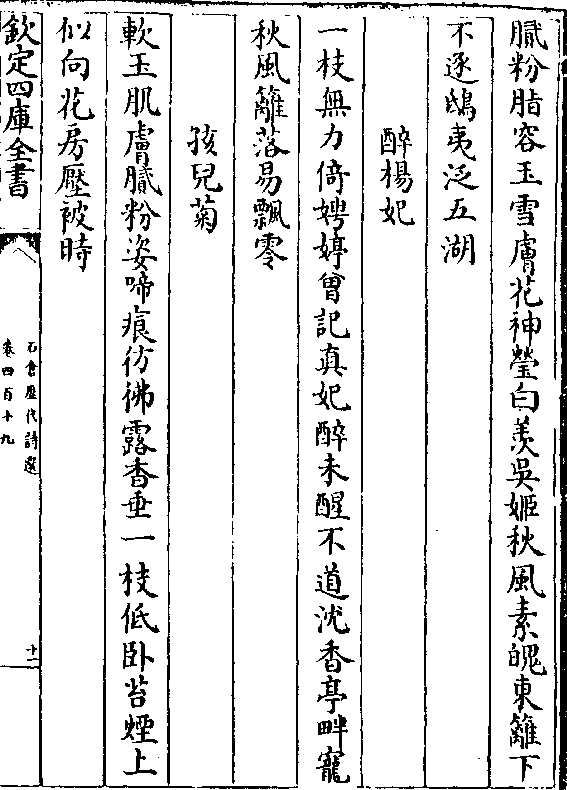 膩粉脂容玉雪膚花神瑩白羡吳姬秋風素魄東籬下
不逐鴟夷泛五湖
醉楊妃
一枝無力倚娉婷曾記真妃醉未醒不道沈香亭畔寵
秋風籬落易飄零
孩兒菊
軟玉肌膚膩粉姿啼痕彷彿露香垂一枝低卧苔煙上
似向花房壓被時
欽定四庫全書
石倉歷代詩選
卷四百十九
十一